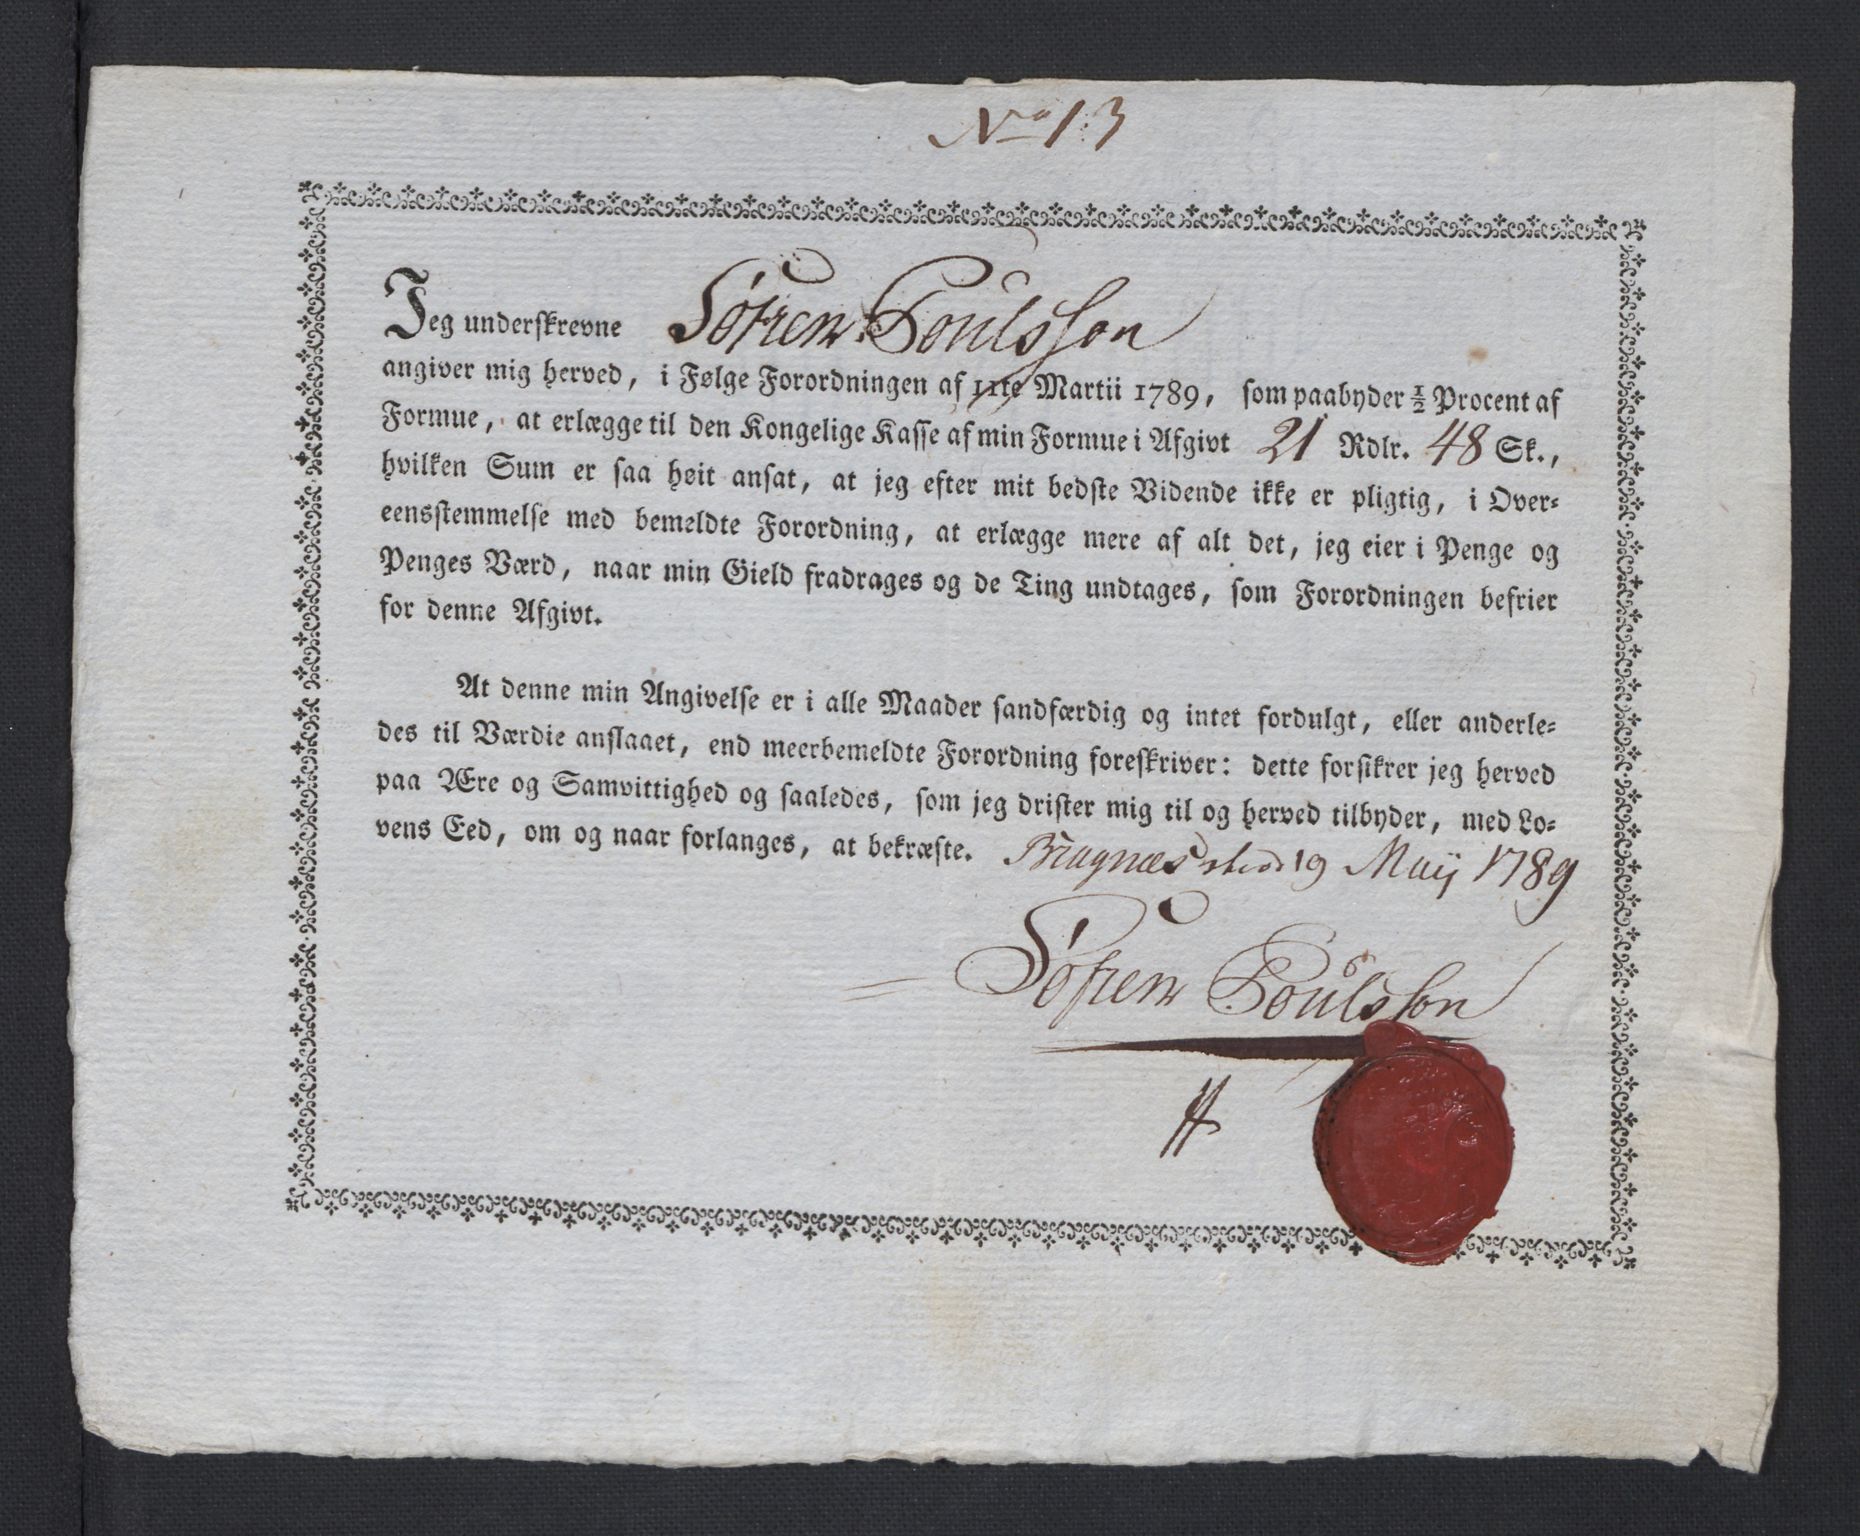 No 13
Jeg underskrevne Søfren Poulsson
angiver mig herved, i Følge Forordningen af 11te Martii 1789, som paabyder ½ Procent af
Formue, at erlægge til den Kongelige Kasse af min Formue i Afgivt 21 Rdlr. 48 Sk.,
hvilken Sum er saa høit ansat, at jeg efter mit bedste Vidende ikke er pligtig, i Over-
eensstemmelse med bemeldte Forordning, at erlægge mere af alt det, jeg eier i Penge og
Penges Værd, naar min Gield fradrages og de Ting undtages, som Forordningen befrier
for denne Afgivt.
At denne min Angivelse er i alle Maader sandfærdig og intet fordulgt, eller anderle-
des til Værdie anslaaet, end meerbemeldte Forordning foreskriver: dette forsikrer jeg herved
paa Ære og Samvittighed og saaledes, som jeg drister mig til og herved tilbyder, med Lo-
vens Eed, om og naar forlanges, at bekræfte. Bragnæs 19 Maij 1789
Søfren Poulsson